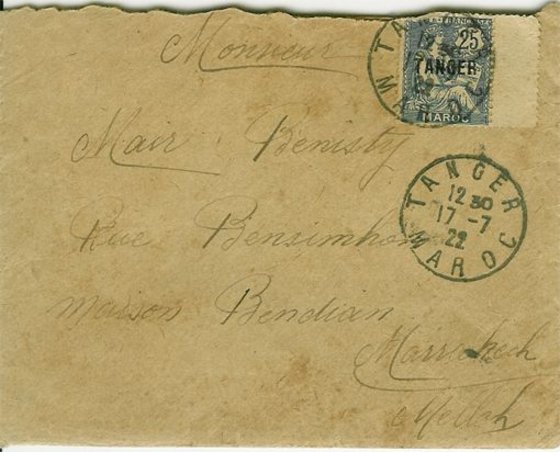 Monsieur
Mair Benisty
Rue Bensimhon
maison Bendian
Marrakech
Mellah
25
TANGER
MAROC
TANGER
12 30
MAROC
TANGER
12 30
17 -7
22
MAROC